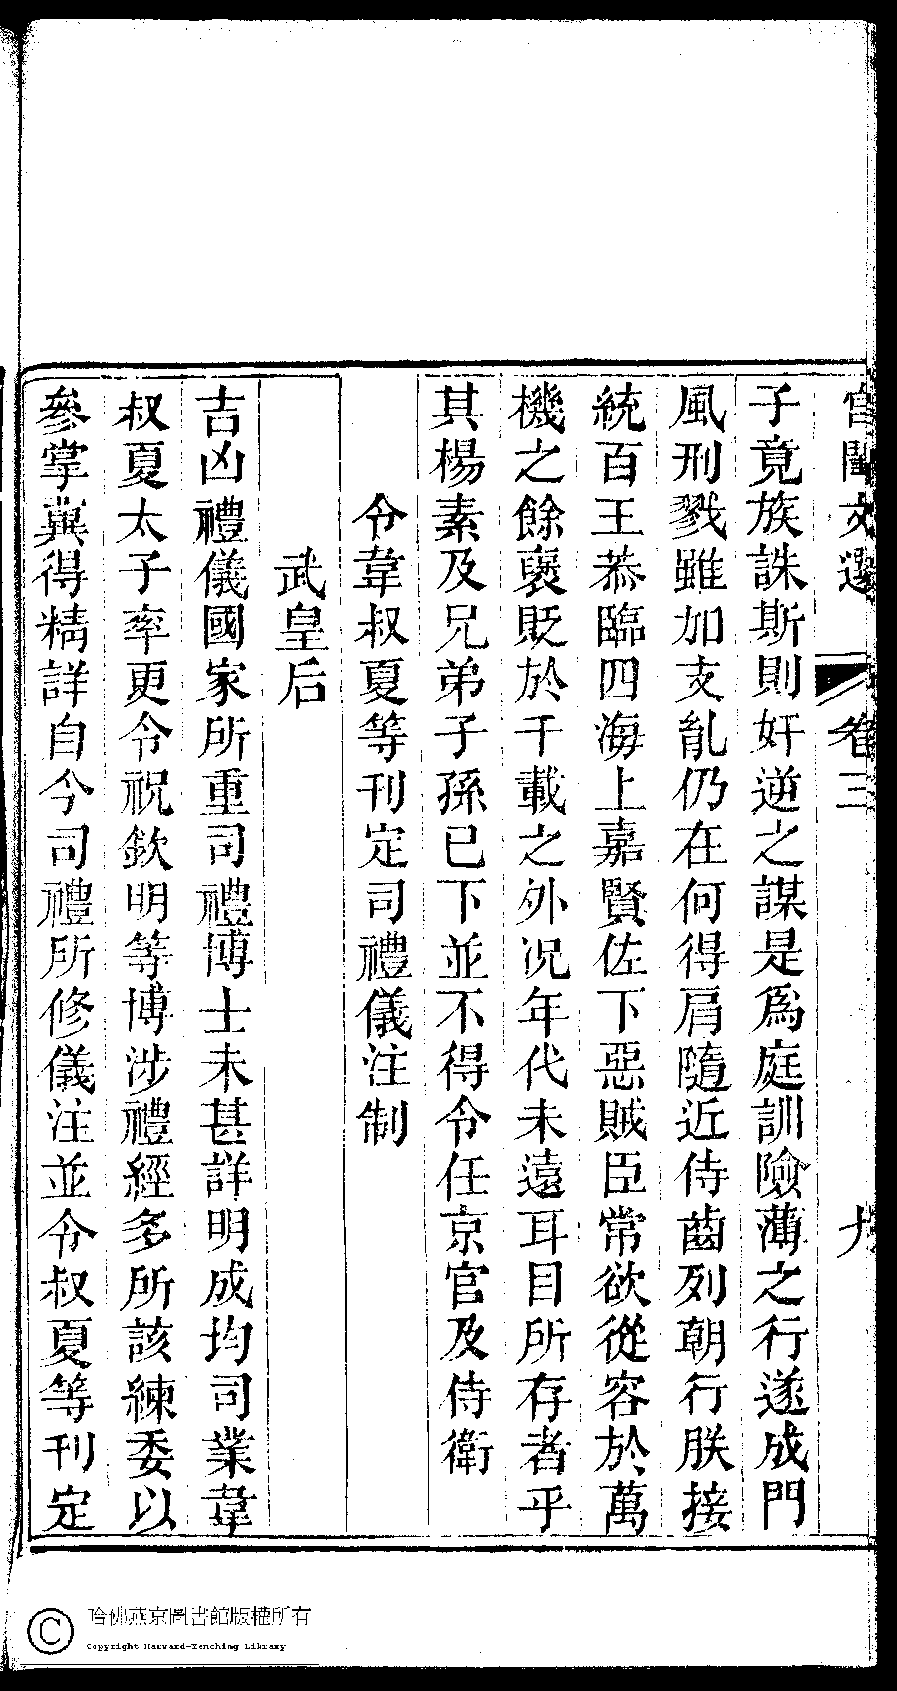 宮閨文選 卷三 九
子竟族誅斯則奸逆之謀是爲庭訓險薄之行遂成門
風刑戮雖加支胤仍在何得肩隨近侍齒列朝行朕接
統百王恭臨四海上嘉賢佐下惡賊臣常欲從容於萬
機之餘襃貶於千載之外况年代未遠耳目所存者乎
其楊素及兄弟子孫已下並不得令任京官及侍衛
令韋叔夏等刊定司禮儀注制
武皇后
吉凶禮儀國家所重司禮博士未甚詳明成均司業韋
叔夏太子率更令祝欽明等博涉禮經多所該練委以
參掌冀得精詳自今司禮所修儀注並令叔夏等刊定
哈佛燕京圖書館版權所有
Copyright Harvard-Yenching Library